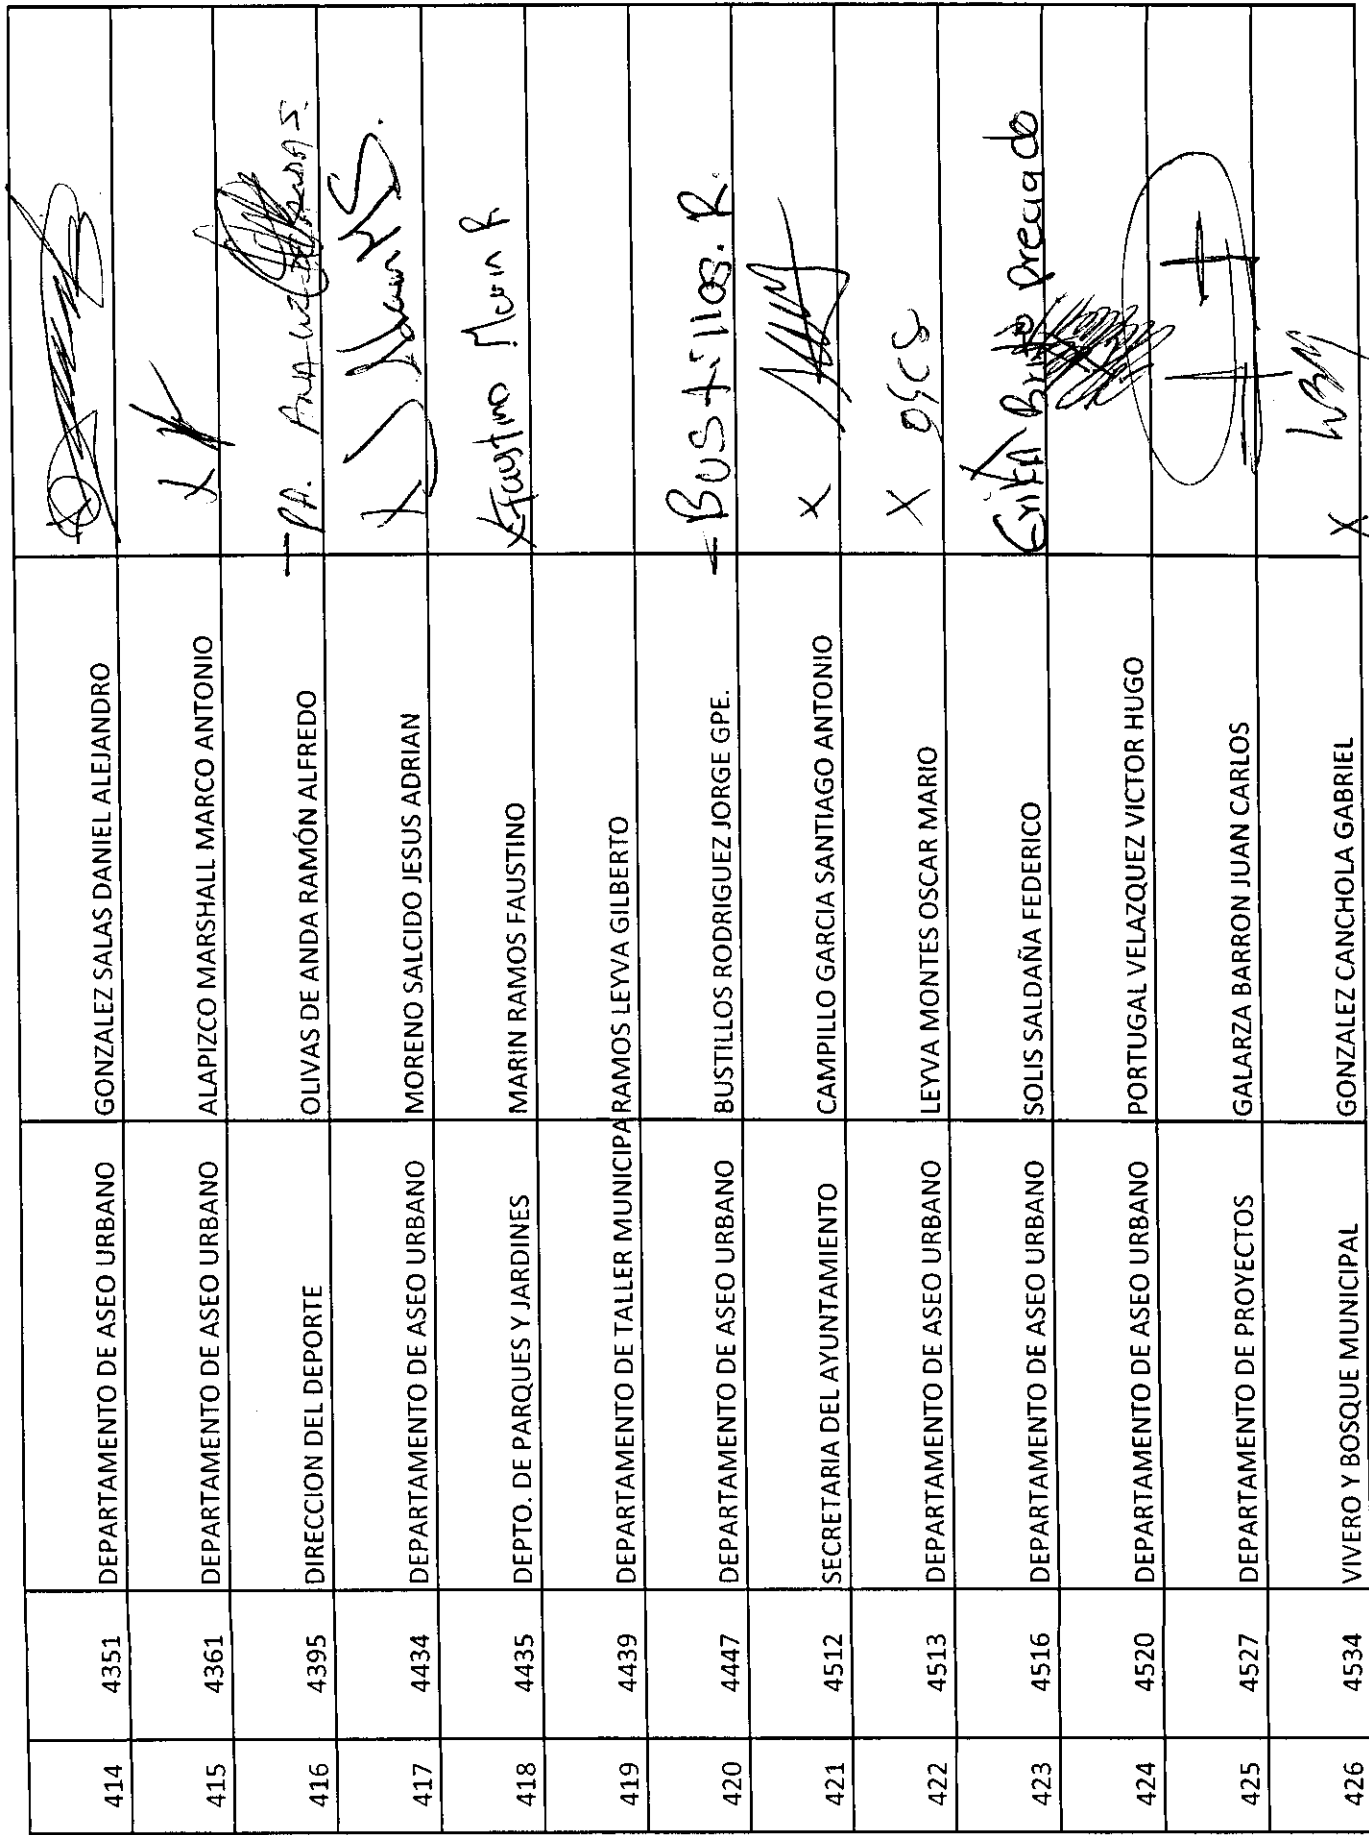 414 4351 DEPARTAMENTO DE ASEO URBANO GONZALEZ SALAS DANIEL ALEJANDRO
415 4361 DEPARTAMENTO DE ASEO URBANO ALAPIZCO MARSHALL MARCO ANTONIO X
416 4395 DIRECCION DEL DEPORTE OLIVAS DE ANDA RAMÓN ALFREDO P.A.
417 4434 DEPARTAMENTO DE ASEO URBANO MORENO SALCIDO JESUS ADRIAN X
418 4435 DEPTO. DE PARQUES Y JARDINES MARIN RAMOS FAUSTINO X Faustino Marin R
419 4439 DEPARTAMENTO DE TALLER MUNICIPA RAMOS LEYVA GILBERTO
420 4447 DEPARTAMENTO DE ASEO URBANO BUSTILLOS RODRIGUEZ JORGE GPE. Bustillos. R.
421 4512 SECRETARIA DEL AYUNTAMIENTO CAMPILLO GARCIA SANTIAGO ANTONIO X
422 4513 DEPARTAMENTO DE ASEO URBANO LEYVA MONTES OSCAR MARIO X
423 4516 DEPARTAMENTO DE ASEO URBANO SOLIS SALDAÑA FEDERICO Erika Brito preciado
424 4520 DEPARTAMENTO DE ASEO URBANO PORTUGAL VELAZQUEZ VICTOR HUGO
425 4527 DEPARTAMENTO DE PROYECTOS GALARZA BARRON JUAN CARLOS
426 4534 VIVERO Y BOSQUE MUNICIPAL GONZALEZ CANCHOLA GABRIEL X